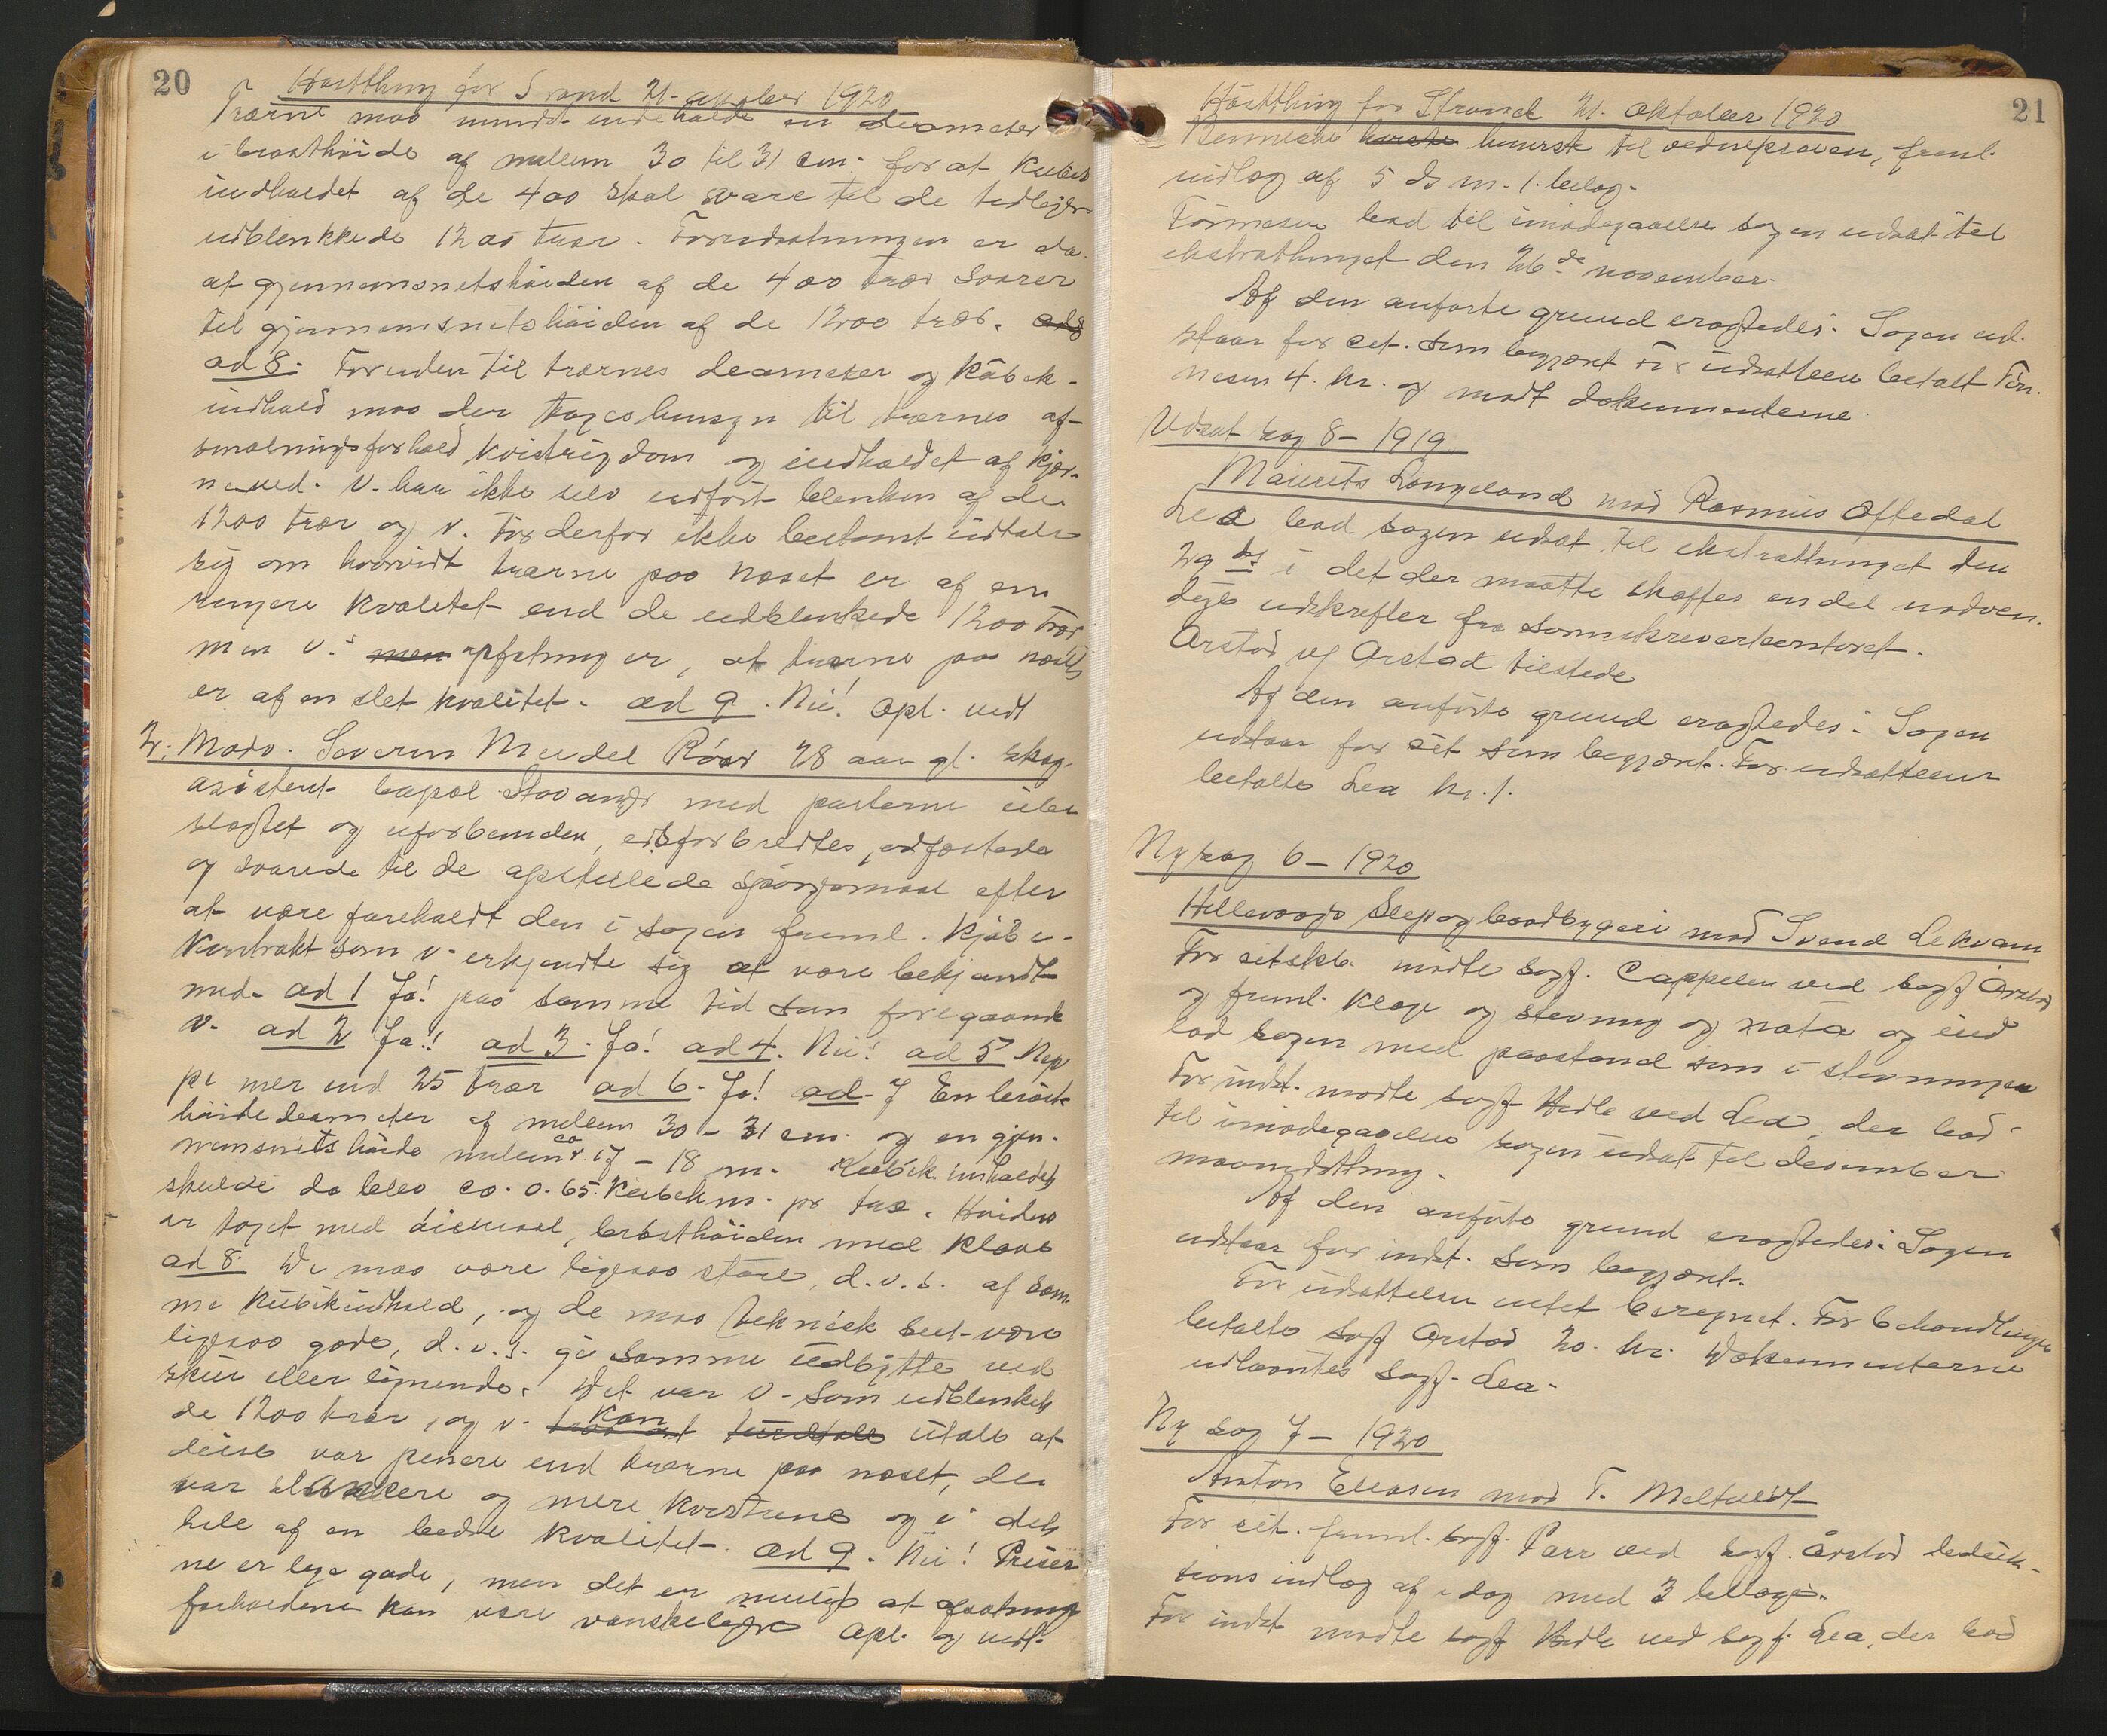 20
Høstthing for Strand 21. oktober 1920
Trærne maa mindst indeholde en deameter
i brøsthøide af mellem 30 til 31 cm. for at kubik
indholdet af de 400 skal svare til de tidligere
udblenkkede 1200 trær. Forudsætningen er da
at gjennemsnetshøiden af de 400 trær svarer
til gjennemsnetshøiden af de 1200 trær. ad 8
ad 8. Foruden til trærnes deameter og kubik-
indhold maa der tages hensyn til trærnes af-
smalningsforhold kvistrigdom og indholdet af kjær-
neved. V. har ikke selv udført blenken af de
1200 trær og v. tør derfor ikke bestemt udtale
sig om hvorvidt trærne paa næset er af en
ringere kvalitet end de udblenkede 1200 trær
men v.s men opfatning er, at trærne paa næset
er af en slet kvalitet. ad 9. Nei! Opl. vedt
2. Modv. Severin Meidel Röer 28 aar gl. skog-
asistent bopæl Stavanger med parterne ube-
slægtet og uforbunden, edsforbredtes, edfæstede
og svarede til de opstillede spørgsmaal efter
at være foreholdt den i sagen freml. kjøbe-
kontrakt som v. erkjendte sig at være bekjendt
med. ad 1 Ja! paa samme tid som foregaaende
v. ad 2 Ja! ad 3. Ja! ad 4. Nei! ad 5 Nep
pe mer end 25 trær ad 6. Ja! ad. 7 En brøst-
høidedeameter af mellem 30 – 31 cm. og en gjen-
nemsnitshøide mellem ca 17 – 18 m. Kubik. inholdet
skulde da blive ca. 0.65 kubekm. pr træ. Høiden
er taget med øiemaal, brøsthøiden med klave
ad 8. De maa være ligesaa store, d.v.s. af sam-
me kubikindhold, og de maa teknisk set være
ligesaa gode, d.v.s. gi samme udbytte ved
skur eller lignende. Det var v. som udblenket
de 1200 trær, og v. kan utale at
disse var penere end trærne paa næset, de
var slankere og mere kvistrene og i det
hele af en bedre kvalitet. ad 9. Nei! Priser
ne er lige gode, men det er muligt at afsætnings
forholdene kan være vanskeligere Opl. og vedt.
21
Høstthing for Strand 21. oktober 1920
Benneche henviste til vedneprøven, freml.
indlæg af 5 ds m. 1. belag.
Tönnesen bad til imødegaaelse sagen udsat til
ekstrathinget den 26de november.
Af den anførte grund eragtedes: Sagen ud-
staar for cet. som begjært For udsættelsen betalt Tön-
nesen 4. kr. og modt dokumenterne.
Udsat sag 8 – 1919.
Maurits Langeland mod Rasmus Oftedal
Lea bad sagen udsat til ekstrathinget den
29 ds i det der maatte skaffes en del nødven-
dige udskrifter fra sorenskreverkontoret.
Årstad og Årstad tilstede
Af den anførte grund eragtedes: Sagen
udstaar for cet som begjært. For udsættelsen
betalte Lea kr. 1.
Ny sag 6 – 1920
Hillevaags Slep og baadbyggeri mod Svend Lekvam
For citskb. mødte sagf. Cappelen ved sagf Årstad
og freml. klage og stevning og nota og ind
lod sagen med paastand som i stevningen
For indst. mødte sagf Helle ved Lea, der bad
til imødegaaelse sagen udsat til desember
maanedsthing.
Af den anførte grund eragtedes: Sagen
udstaar for indst. som begjært.
For udsættelsen intet beregnet. For behandlingen
betalte sagf Årstad 20. kr. Dokumenterne
udlaantes sagf. Lea.
Ny sag 7 – 1920
Anton Eliasen mod T. Meltveidt
For cit. freml. sagf. Parr ved sagf. Årstad deduk-
sionsindlæg af i dag med 3 bilage.
For indst mødte sagf Helle ved sagf. Lea, der bad